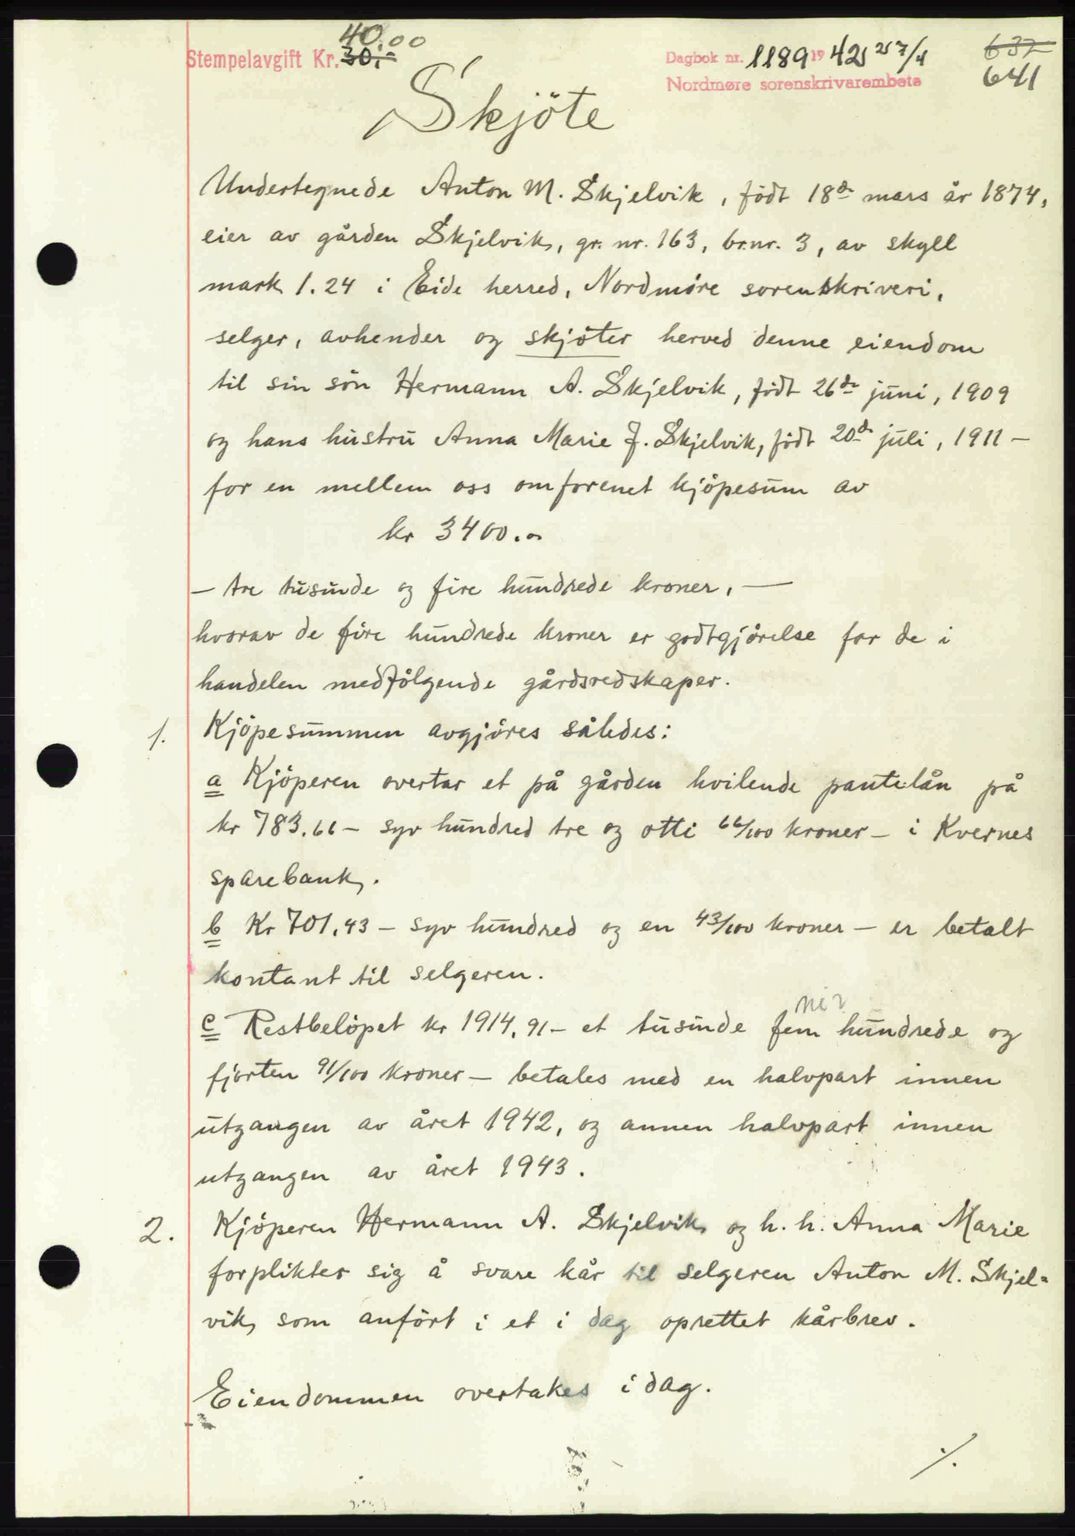 40.00
Stempelavgift Kr. 30,-
Dagbok nr. 1189 1942 25 7/4
Nordmøre sorenskrivarembete
632
641
Skjöte
Undertegnede Anton M. Skjelvik, födt 18de mars år 1874,
eier av gården Skjelvik, gr. nr. 163, br.nr. 3, av skyll
mark 1.24 i Eide herred, Nordmöre sorenskriveri,
selger, avhender og skjöter herved denne eiendom
til sin sön Hermann A. Skjelvik, födt 26de juni, 1909
og hans hustru Anna Marie J. Skjelvik, födt 20de juli, 1911 –
for en mellem oss omforenet kjöpesum av
kr 3400.00
– tre tusinde og fire hundrede kroner, –
hvorav de fire hundrede kroner er godtgjörelse for de i
handelen medfölgende gårdsredskaper.
1. Kjöpesummen avgjöres således:
a Kjöperen overtar et på gården hvilende pantelån på
kr 783.66 – syv hundred tre og otti 66/100 kroner – i Kvernes
sparebank.
b Kr 701,43 – syv hundred og en 43/100 kroner – er betalt
kontant til selgeren.
ni?
c Restbelöpet kr 1914,91 – et tusinde fem hundrede og
fjorten 91/100 kroner – betales med en halvpart innen
utgangen av året 1942, og annen halvpart innen
utgangen av året 1943.
2. Kjöperen Hermann A. Skjelvik og h. h. Anna Marie
forplikter sig å svare kår til selgeren Anton M. Skjel=
vik, som anfört i et i dag oprettet kårbrev.
Eiendommen overtakes i dag.
./.